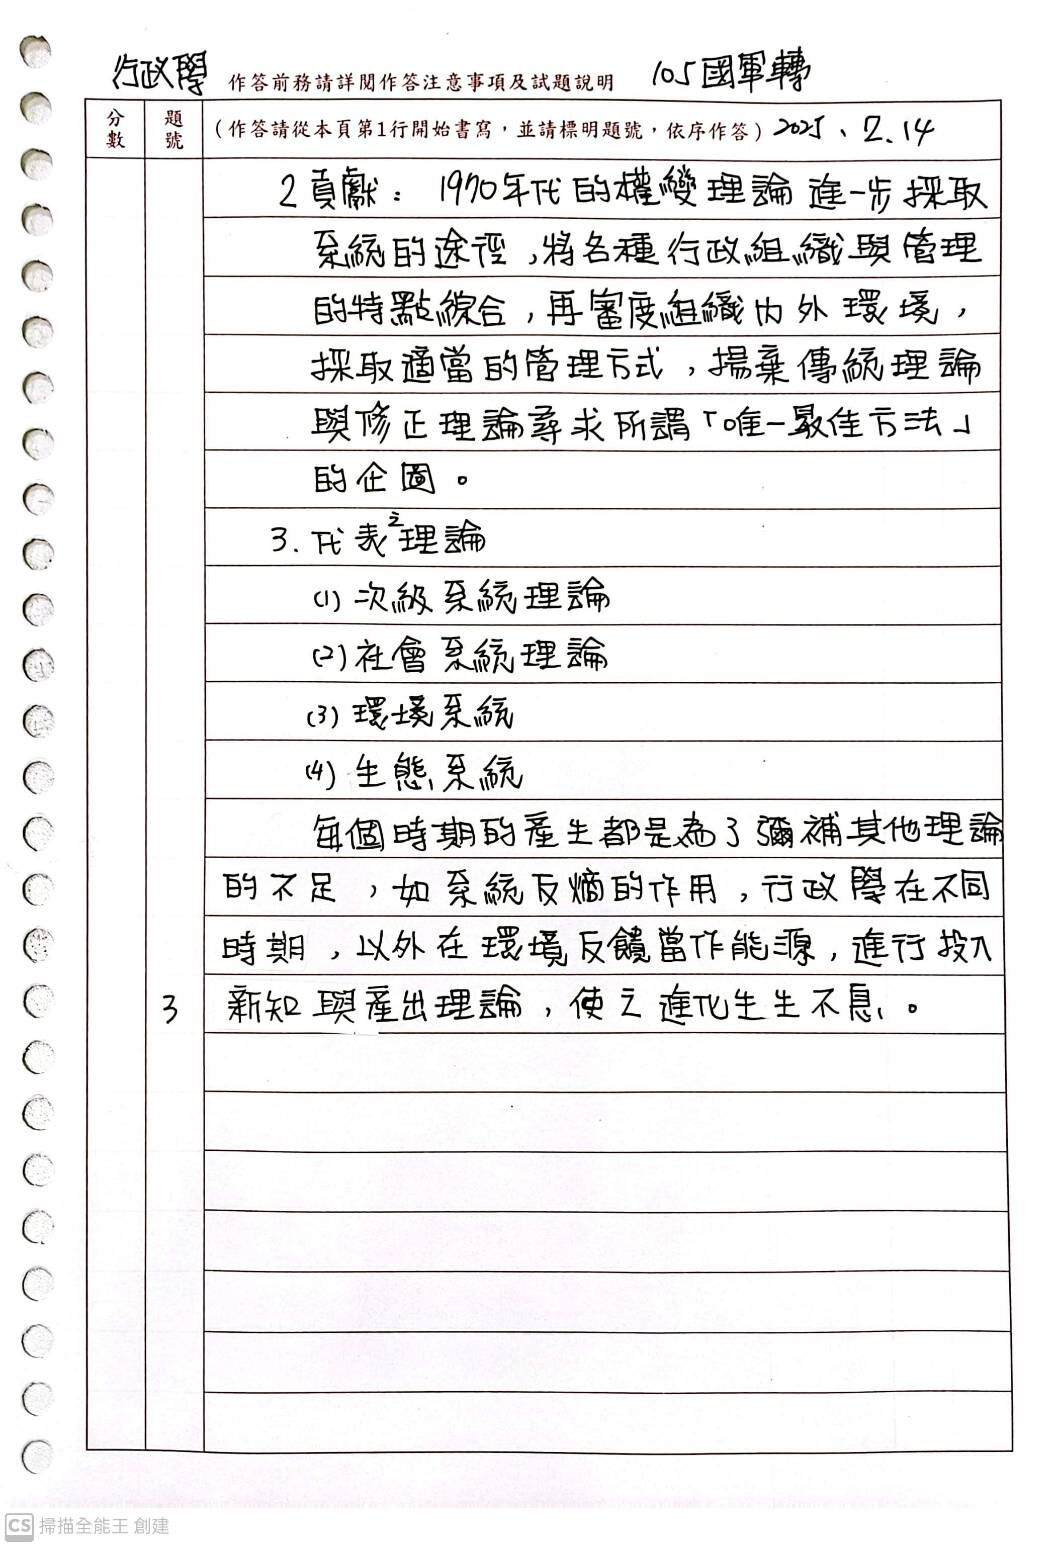 行政學 作答前務請詳閱作答注意事項及試題說明 105國軍轉
分數 題號 (作答請從本頁第1行開始書寫，並請標明題號，依序作答) 2025、2.14
2貢獻：1970年代的權變理論進一步採取
系統的途徑，將各種行政組織與管理
的特點綜合，再審度組織內外環境，
採取適當的管理方式，揚棄傳統理論
與修正理論尋求所謂「唯一最佳方法」
的企圖。
3. 代表之理論
(1) 次級系統理論
(2) 社會系統理論
(3) 環境系統
(4) 生態系統
每個時期的產生都是為了彌補其他理論
的不足，如系統反熵的作用，行政學在不同
時期，以外在環境反饋當作能源，進行投入
3 新知與產出理論，使之進化生生不息。
CS 掃描全能王 創建